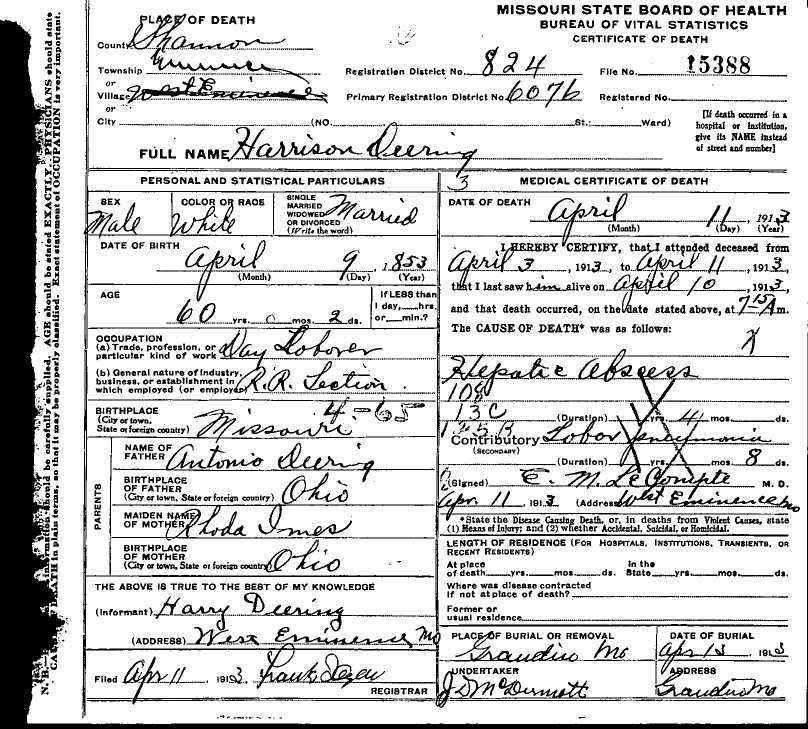 MISSOURI STATE BOARD OF HEALTH
BUREAU OF VITAL STATISTICS
CERTIFICATE OF DEATH
PLACE OF DEATH
County Shannon
Township
or
Village West Eminence
or
City (NO. St.; Ward)
Registration District No. 824 File No. 15388
Primary Registration District No. 6076 Registered No.
[If death occurred in a
hospital or institution,
give its NAME instead
of street and number]
FULL NAME Harrison Deering
PERSONAL AND STATISTICAL PARTICULARS
SEX Male
COLOR OR RACE White
SINGLE
MARRIED
WIDOWED
OR DIVORCED
(Write the word)
Married
DATE OF BIRTH
April 9, 1853
(Month) (Day) (Year)
AGE
60 yrs. 0 mos. 2 ds.
If LESS than
1 day, hrs.
or min.?
OCCUPATION
(a) Trade, profession, or
particular kind of work Day Laborer
(b) General nature of industry,
business, or establishment in
which employed (or employer) R.R. Section
4-65
BIRTHPLACE
(City or town,
State or foreign country) Missouri
PARENTS
NAME OF
FATHER Antonio Deering
BIRTHPLACE
OF FATHER
(City or town, State or foreign country) Ohio
MAIDEN NAME
OF MOTHER Rhoda Imes
BIRTHPLACE
OF MOTHER
(City or town, State or foreign country) Ohio
THE ABOVE IS TRUE TO THE BEST OF MY KNOWLEDGE
(Informant) Harry Deering
(ADDRESS) West Eminence Mo
Filed Apr 11 1913 Frank
REGISTRAR
3 MEDICAL CERTIFICATE OF DEATH
DATE OF DEATH
April 11, 1913
(Month) (Day) (Year)
I HEREBY CERTIFY, that I attended deceased from
April 3, 1913, to April 11, 1913,
that I last saw him alive on April 10, 1913,
and that death occurred, on the date stated above, at 7-15 A m.
The CAUSE OF DEATH* was as follows:
Hepatic Abscess
108
13C
(Duration) yrs. 4 mos. ds.
125B
Contributory Lobar Pneumonia
(SECONDARY)
(Duration) yrs. mos. 8 ds.
(Signed) E. M. LeCompte M. D.
Apr. 11, 1913 (Address) West Eminence Mo
*State the Disease Causing Death, or, in deaths from Violent Causes, state
(1) Means of Injury; and (2) whether Accidental, Suicidal, or Homicidal.
LENGTH OF RESIDENCE (FOR HOSPITALS, INSTITUTIONS, TRANSIENTS, OR
RECENT RESIDENTS)
At place
of death yrs. mos. ds.
In the
State yrs. mos. ds.
Where was disease contracted
if not at place of death?
Former or
usual residence
PLACE OF BURIAL OR REMOVAL
Grandin Mo
DATE OF BURIAL
Apr 13 1913
UNDERTAKER
J D McDermott
ADDRESS
Grandin Mo
AGE should be stated EXACTLY. PHYSICIANS should state
properly classified. Exact statement of OCCUPATION is very important.